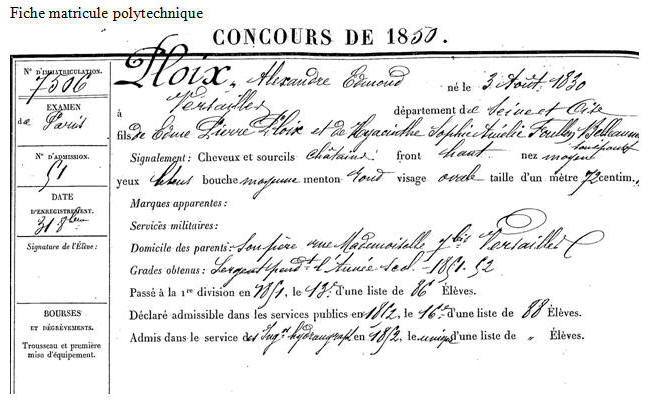 Fiche matricule polytechnique
CONCOURS DE 1850.
N° D'IMMATRICULATION.
7506
EXAMEN
de Paris
N° D'ADMISSION.
51
DATE
D'ENREGISTREMENT.
31 8bre
Signature de l'Élève :
BOURSES
ET DÉGRÈVEMENTS.
Trousseau et première
mise d'équipement.
Ploix, Alexandre Edmond né le 3 Août 1830
à Versailles département de Seine et Oise
fils de Edme Pierre Ploix et de Hyacinthe Sophie Amélie
Signalement : Cheveux et sourcils châtains front haut nez moyen
yeux bleus bouche moyenne menton rond visage ovale taille d'un mètre 72 centim.
Marques apparentes :
Services militaires :
Domicile des parents : Son père rue Mademoiselle 7 bis Versailles
Grades obtenus : Sergent pendt l'Année scol. 1851-52
Passé à la 1re division en 1851, le 13e d'une liste de 86 Élèves.
Déclaré admissible dans les services publics en 1852, le 16e d'une liste de 88 Élèves.
Admis dans le service des Ingrs hydrographes en 1852, le unique d'une liste de " Élèves.